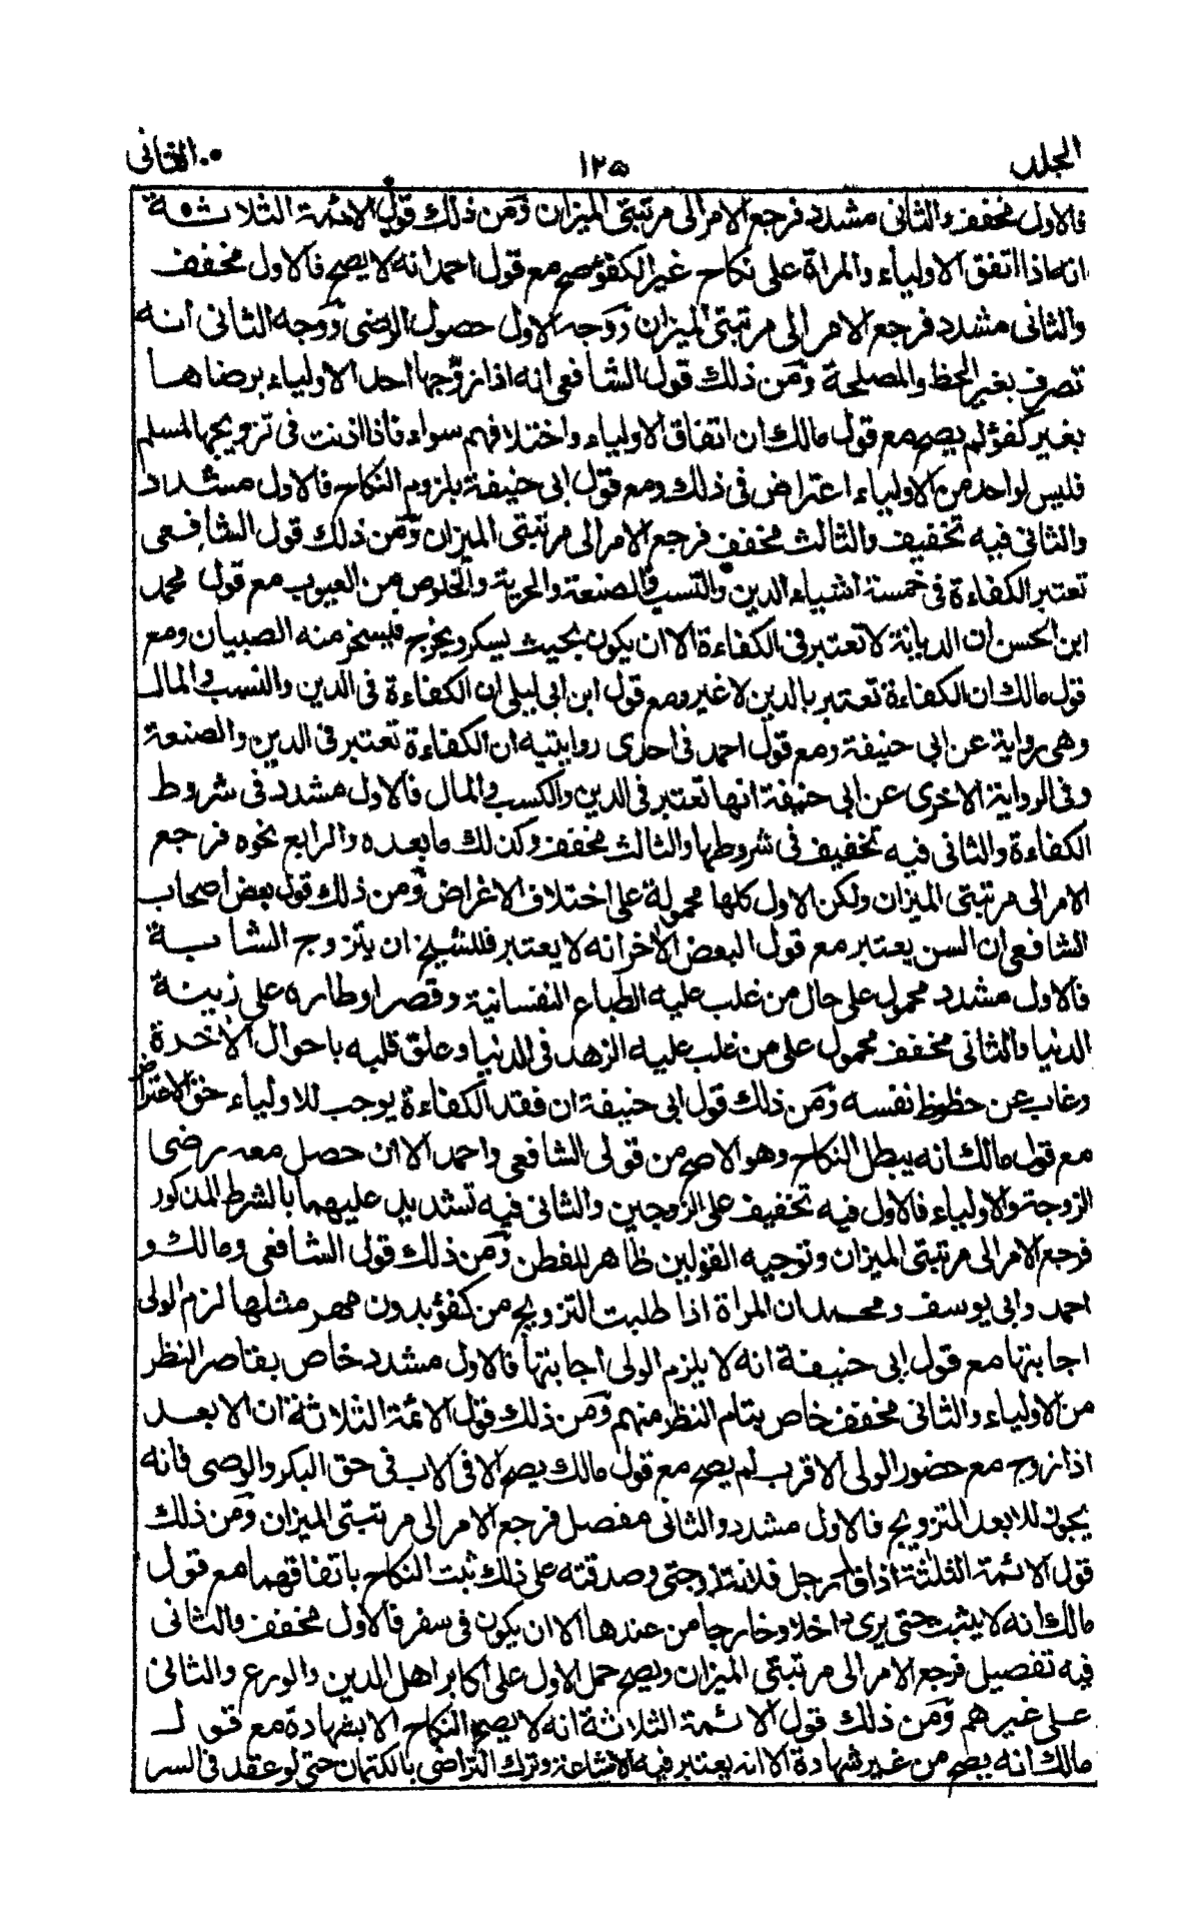 المجلد ١٢٥ الثانى
فالاول مخفف والثانى مشدد فرجع الامر الى مرتبتى الميزان ومن ذلك قول الائمة الثلاثة
انه اذا اتفق الاولياء والمراة على نكاح غير الكفؤ صح مع قول احمد انه لا يصح فالاول مخفف
والثانى مشدد فرجع الامر الى مرتبتى الميزان ووجه الاول حصول الرضى ووجه الثانى انه
تصرف بغير الحظ والمصلحة ومن ذلك قول الشافعى انه اذا زوجها احد الاولياء برضاها
بغير كفؤ لم يصح مع قول مالك ان اتفاق الاولياء واختلافهم سواء فاذا اذنت فى تزويجها لمسلم
فليس لواحد من الاولياء اعتراض فى ذلك ومع قول ابى حنيفة يلزوم النكاح فالاول مشدد
والثانى فيه تخفيف والثالث مخفف فرجع الامر الى مرتبتى الميزان ومن ذلك قول الشافعى
تعتبر الكفاءة فى خمسة اشياء الدين والنسب والصنعة والحرية والخلوص من العيوب مع قول محمد
ابن الحسن ان الديانة لا تعتبر فى الكفاءة الا ان يكون بحيث يسكر ويخرج فيسخر منه الصبيان ومع
قول مالك ان الكفاءة تعتبر بالدين لا غير ومع قول ابن ابى ليلى ان الكفاءة فى الدين والنسب والمال
وهى رواية عن ابى حنيفة ومع قول احمد فى احدى روايتيه ان الكفاءة تعتبر فى الدين والصنعة
وفى الرواية الاخرى عن ابى حنيفة انها تعتبر فى الدين والكسب والمال فالاول مشدد فى شروط
الكفاءة والثانى فيه تخفيف فى شروطها والثالث مخفف وكذلك ما بعده والرابع نحوه فرجع
الامر الى مرتبتى الميزان ولكن الاول كلها محمولة على اختلاف الاغراض ومن ذلك قول بعض اصحاب
الشافعى ان السن يعتبر مع قول البعض الاخر انه لا يعتبر فللشيخ ان يتزوج الشابة
فالاول مشدد محمول على حال من غلب عليه الطباع النفسانية وقصر اوطاره على زينة
الدنيا والثانى مخفف محمول على من غلب عليه الزهد فى الدنيا وعلق قلبه باحوال الاخرة
وغاب عن حظوظ نفسه ومن ذلك قول ابى حنيفة ان فقد الكفاءة يوجب للاولياء حق الاعتراض
مع قول مالك انه يبطل النكاح وهو الاصح من قولى الشافعى واحمد الا ان حصل معه رضى
الزوجة والاولياء فالاول فيه تخفيف على الزوجين والثانى فيه تشديد عليهما بالشرط المذكور
فرجع الامر الى مرتبتى الميزان وتوجيه القولين ظاهر للفطن ومن ذلك قول الشافعى ومالك و
احمد وابى يوسف ومحمد ان المراة اذا طلبت التزويج من كفؤ بدون مهر مثلها لزم الولى
اجابتها مع قول ابى حنيفة انه لا يلزم الولى اجابتها فالاول مشدد خاص بقاصر النظر
من الاولياء والثانى مخفف خاص بتام النظر منهم ومن ذلك قول الائمة الثلاثة ان الابعد
اذا زوج مع حضور الولى الاقرب لم يصح مع قول مالك يصح الا فى الاب فى حق البكر والوصى فانه
يجوز للابعد التزويج فالاول مشدد والثانى مفصل فرجع الامر الى مرتبتى الميزان ومن ذلك
قول الائمة الثلثة اذا قال رجل فلانة زوجتى وصدقته على ذلك ثبت النكاح باتفاقهما مع قول
مالك انه لا يثبت حتى يرى داخلا وخارجا من عندها الا ان يكون فى سفر فالاول مخفف والثانى
فيه تفصيل فرجع الامر الى مرتبتى الميزان ويصح حمل الاول على اكابر اهل الدين والورع والثانى
على غيرهم ومن ذلك قول الائمة الثلاثة انه لا يصح النكاح الا بشهادة مع قول
مالك انه يصح من غير شهادة الا انه يعتبر فيه الاشاعة وترك التراضى بالكتمان حتى لو عقد فى السر